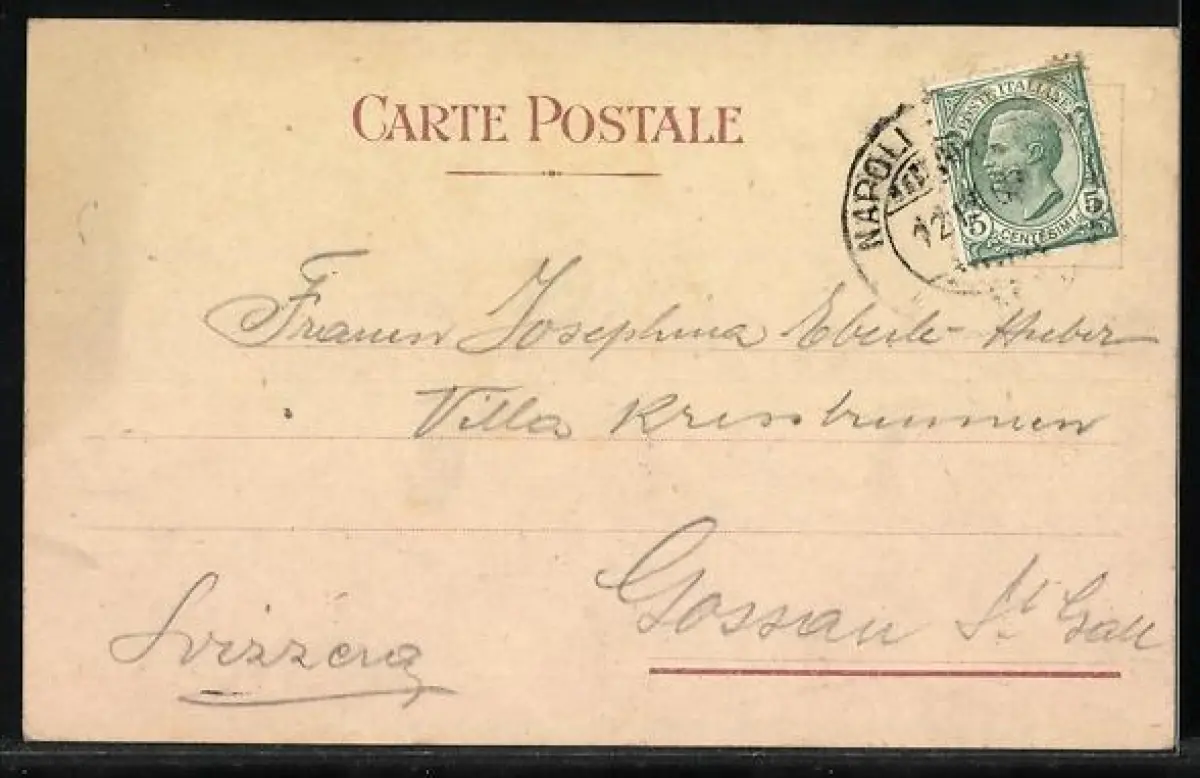 CARTE POSTALE
NAPOLI
12
POSTE ITALIANE
5 CENTESIMI 5
Josephina Eberle-Huber
Villa
Gossau St Gall
Svizzera